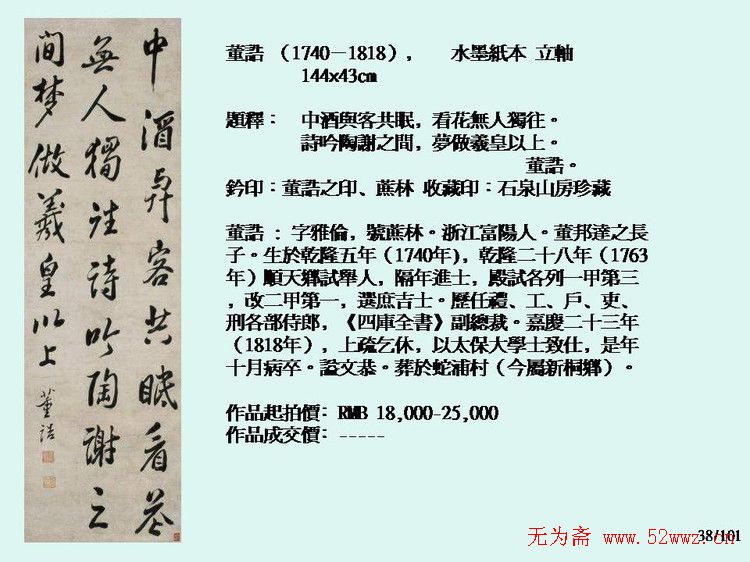 中酒與客共眠看花
無人獨往詩吟陶謝之
間梦做羲皇以上
董誥
董誥 （1740－1818）， 水墨紙本 立軸
144x43cm
題釋： 中酒與客共眠，看花無人獨往。
詩吟陶謝之間，夢做羲皇以上。
董誥。
鈐印：董誥之印、蔗林 收藏印：石泉山房珍藏
董誥 ：字雅倫，號蔗林。浙江富陽人。董邦達之長
子。生於乾隆五年（1740年），乾隆二十八年（1763
年）順天鄉試舉人，隔年進士，殿試各列一甲第三
，改二甲第一，選庶吉士。歷任禮、工、戶、吏、
刑各部侍郎，《四庫全書》副總裁。嘉慶二十三年
（1818年），上疏乞休，以太保大學士致仕，是年
十月病卒。謚文恭。葬於蛇浦村（今屬新桐鄉）。
作品起拍價：RMB 18,000-25,000
作品成交價：-----
38/101
无为斋 www.52wwz.cn